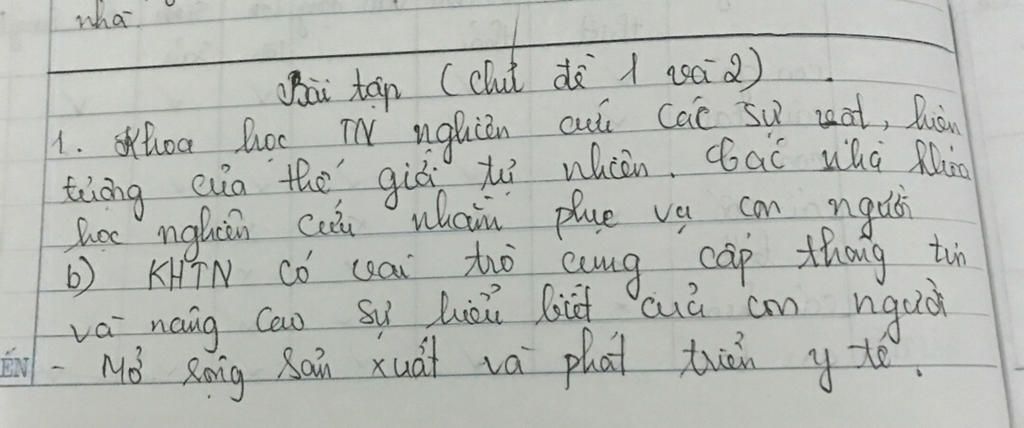 nhà
Bài tập (Chủ đề 1 và 2)
1. Khoa học TN nghiên cứu các sự vật, hiện
tượng của thế giới tự nhiên. Các nhà khoa
học nghiên cứu nhằm phục vụ con người
b) KHTN có vai trò cung cấp thông tin
và nâng cao sự hiểu biết của con người
- Mở rộng sản xuất và phát triển y tế.
ẾN